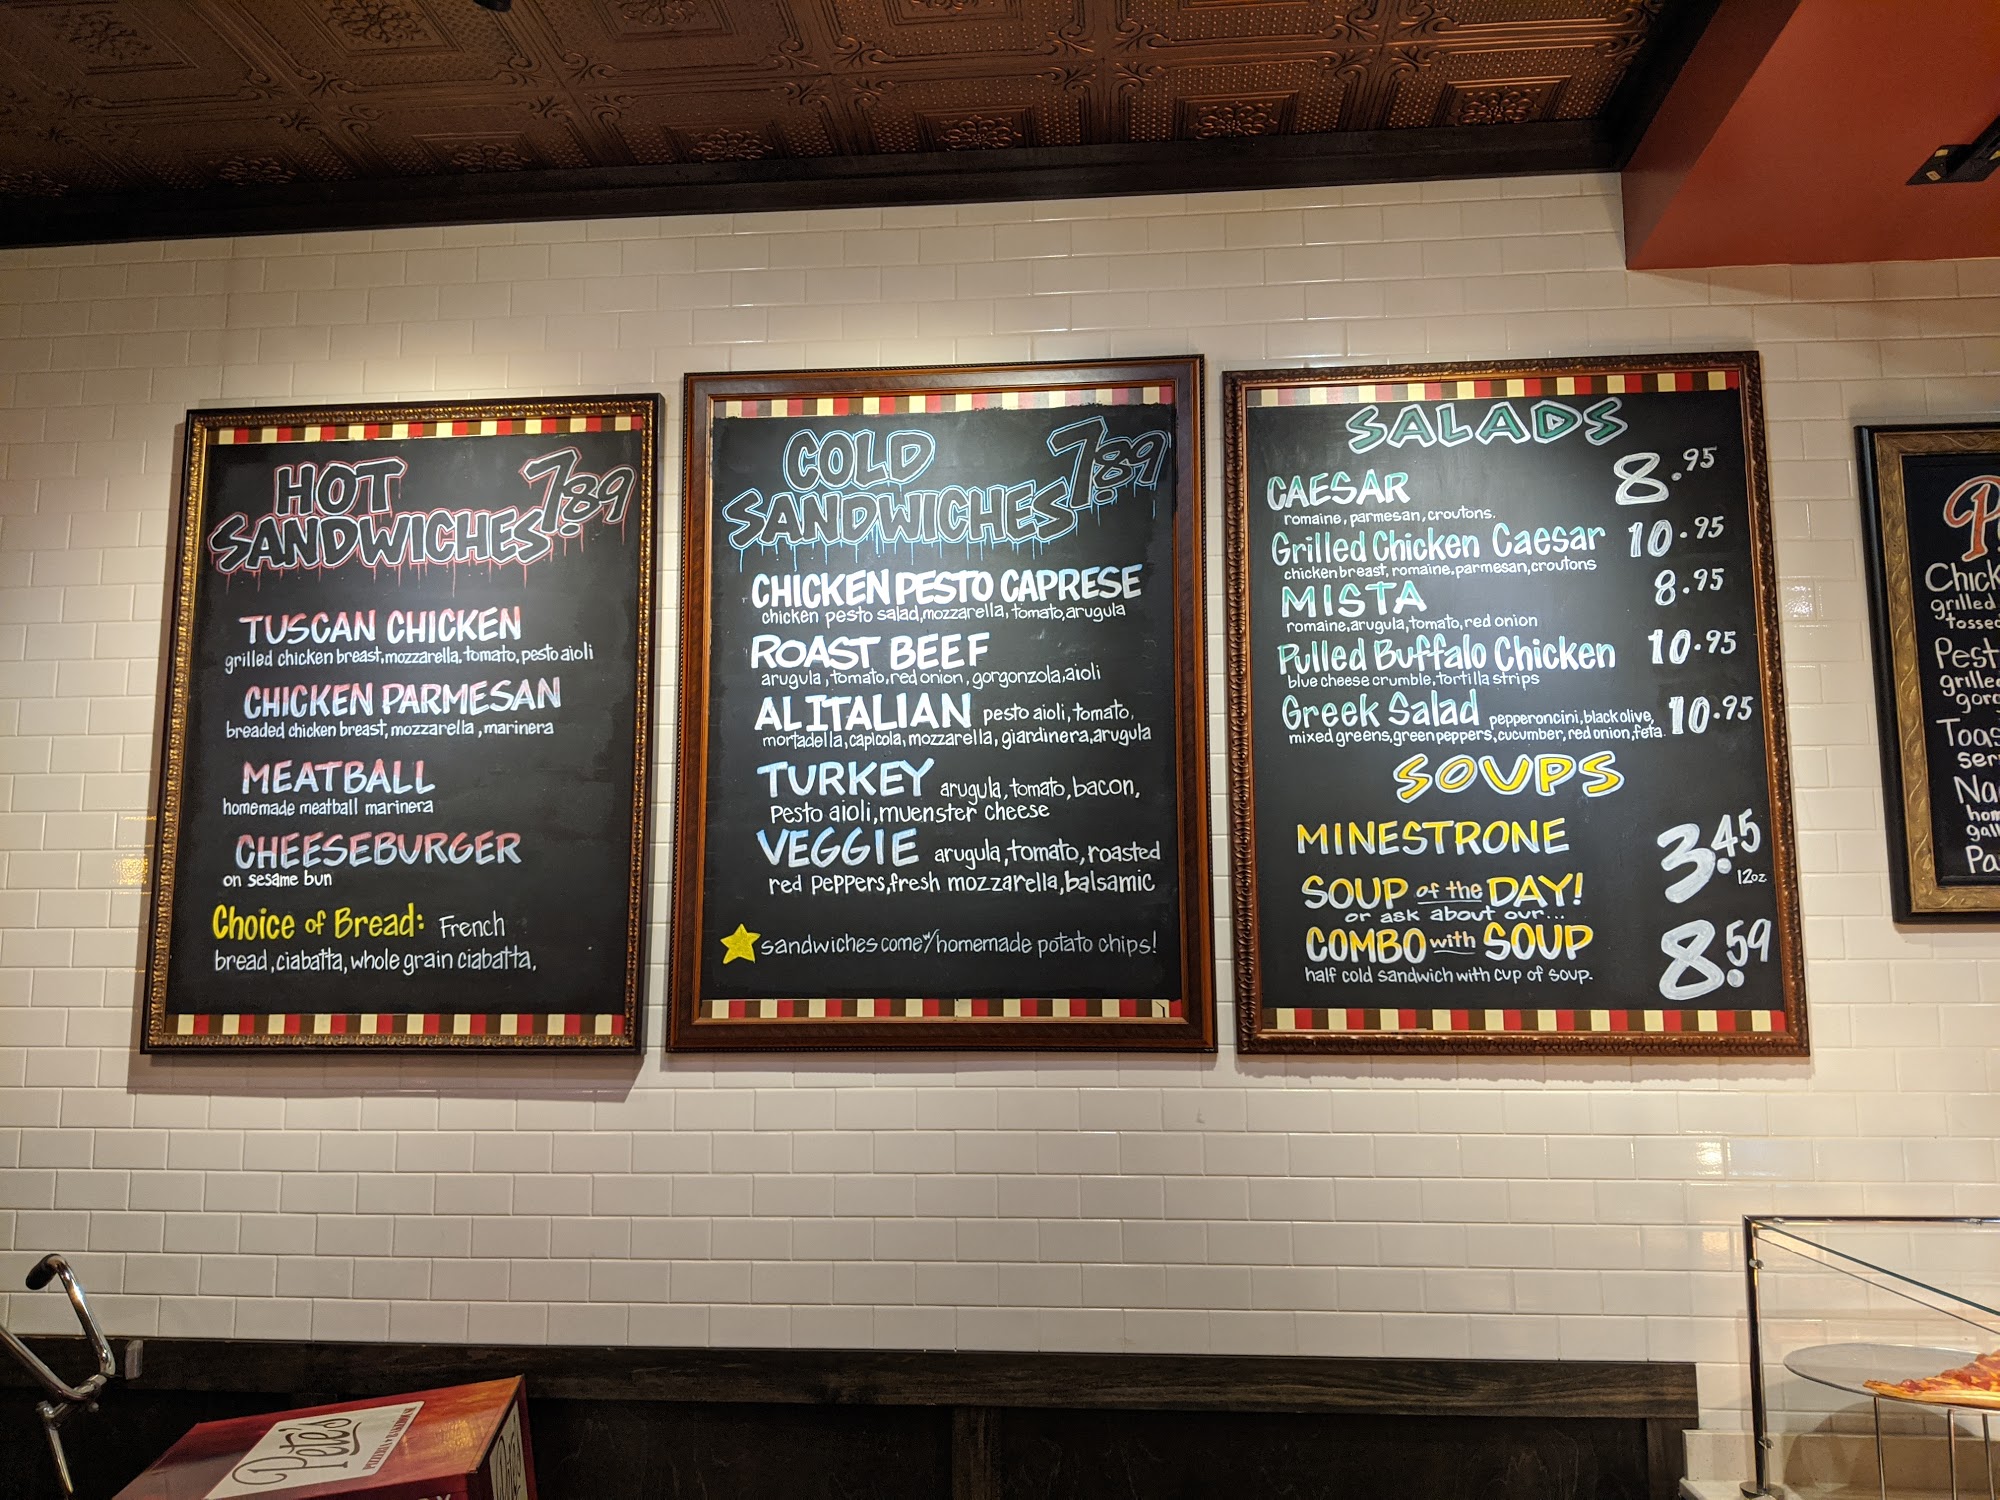 HOT
SANDWICHES 7.89
TUSCAN CHICKEN
grilled chicken breast, mozzarella, tomato, pesto aioli
CHICKEN PARMESAN
breaded chicken breast, mozzarella, marinera
MEATBALL
homemade meatball marinera
CHEESEBURGER
on sesame bun
Choice of Bread: French
bread, ciabatta, whole grain ciabatta,
COLD
SANDWICHES 7.89
CHICKEN PESTO CAPRESE
chicken pesto salad, mozzarella, tomato, arugula
ROAST BEEF
arugula, tomato, red onion, gorgonzola, aioli
ALITALIAN pesto aioli, tomato,
mortadella, capicola, mozzarella, giardinera, arugula
TURKEY arugula, tomato, bacon,
Pesto aioli, muenster cheese
VEGGIE arugula, tomato, roasted
red peppers, fresh mozzarella, balsamic
sandwiches come w/ homemade potato chips!
SALADS
CAESAR 8.95
romaine, parmesan, croutons.
Grilled Chicken Caesar 10.95
chicken breast, romaine, parmesan, croutons
MISTA 8.95
romaine, arugula, tomato, red onion
Pulled Buffalo Chicken 10.95
blue cheese crumble, tortilla strips
Greek Salad pepperoncini, black olive, 10.95
mixed greens, green peppers, cucumber, red onion, feta
SOUPS
MINESTRONE 3.45
12oz
SOUP of the DAY!
or ask about our...
COMBO with SOUP 8.59
half cold sandwich with cup of soup.
grilled
tossed
Pete's